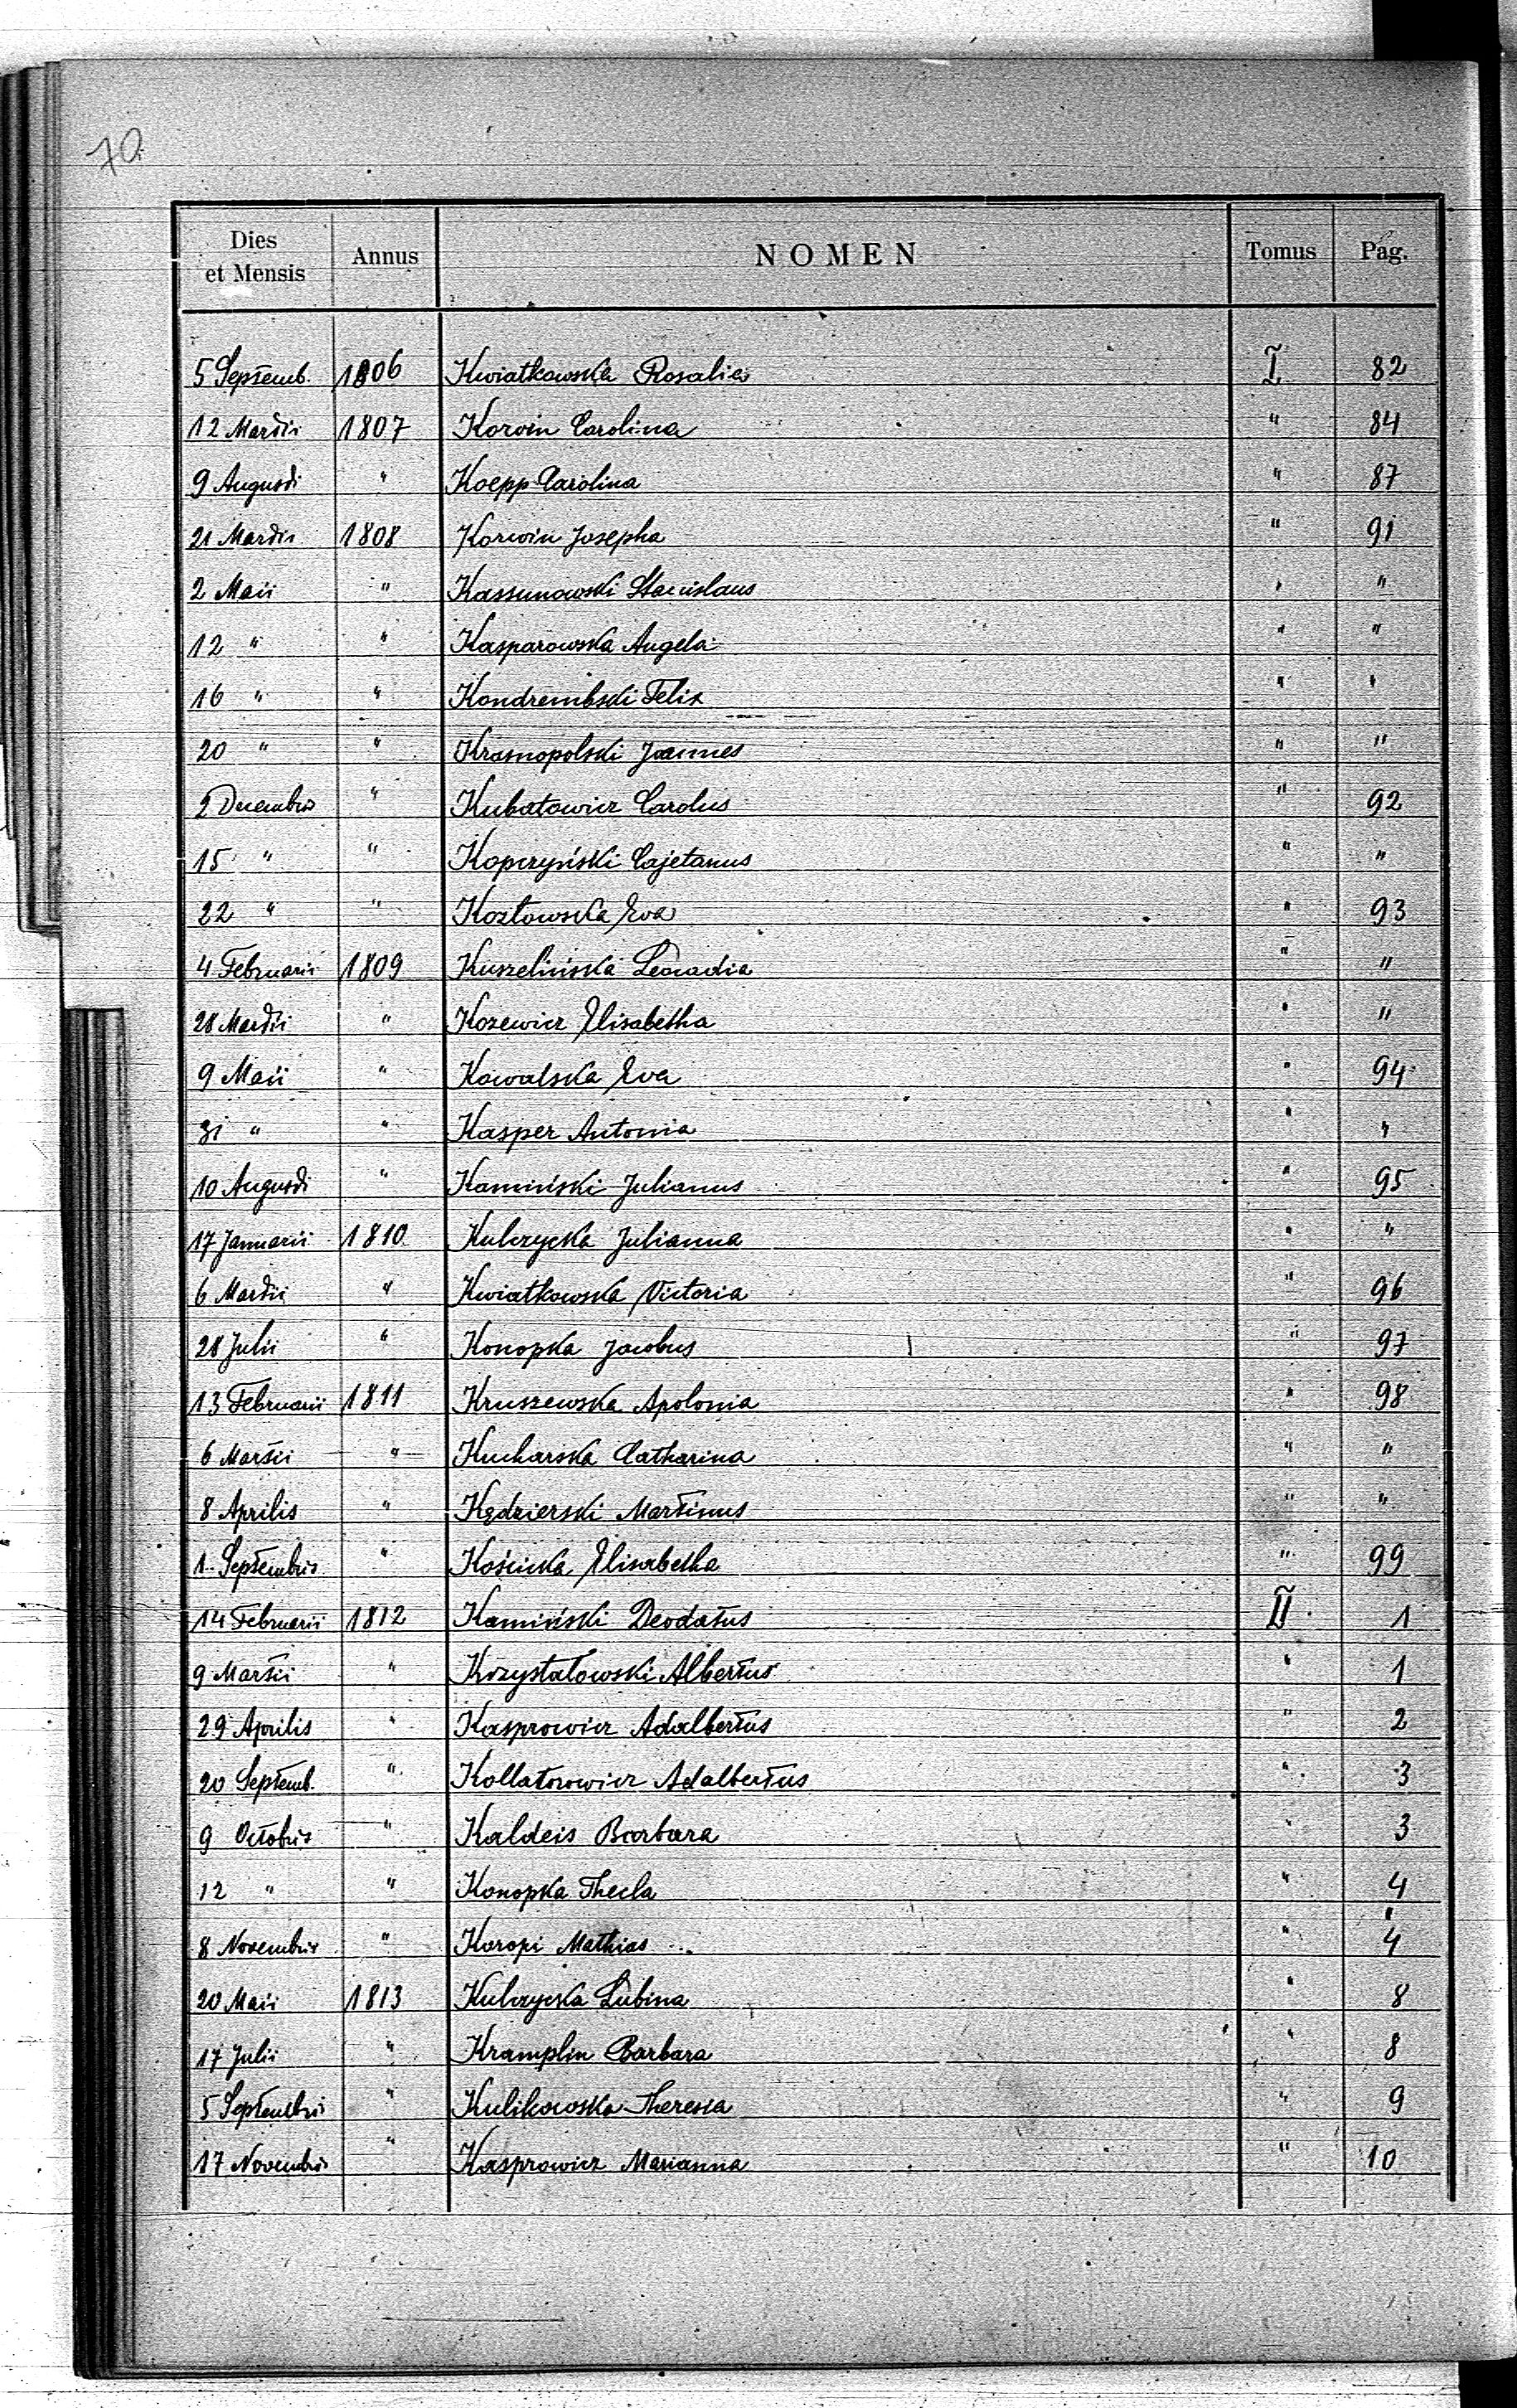 70.
Dies et Mensis Annus NOMEN Tomus Pag.
5 Septemb. 1806 Kwiatkowska Rosalia I 82
12 Martii 1807 Korvin Carolina " 84
9 Augusti " Koepp Carolina " 87
21 Martii 1808 Korwin Josepha " 91
2 Maii " Kassunowski Stanislaus " "
12 " " Kasparowska Angela " "
16 " " Kondrembski Felix " "
20 " " Krasnopolski Joannes " "
2 Decembris " Kubatowicz Carolus " 92
15 " " Kopczyński Cajetanus " "
22 " " Kozłowska Eva " 93
4 Februarii 1809 Kuszelińska Leocadia " "
28 Martii " Kozewicz Elisabetha " "
9 Maii " Kowalska Eva " 94
31 " " Kasper Antonia " "
10 Augusti " Kamiński Julianus " 95
17 Januarii 1810 Kulczycka Julianna " "
6 Martii " Kwiatkowska Victoria " 96
28 Julii " Konopka Jacobus " 97
13 Februarii 1811 Kruszewska Apolonia " 98
6 Martii " Kucharska Catharina " "
8 Aprilis " Kędzierski Martinus " "
1 Septembris " Kościcka Elisabetha " 99
14 Februarii 1812 Kamiński Deodatus II 1
9 Martii " Krzystałowski Albertus " 1
29 Aprilis " Kasprowicz Adalbertus " 2
20 Septemb. " Kollatorowicz Adalbertus " 3
9 Octobris " Kaldeis Barbara " 3
12 " " Konopka Thecla " 4
8 Novembris " Koropi Mathias " 4
20 Maii 1813 Kulczycka Lubina " 8
17 Julii " Kramplin Barbara " 8
5 Septembris " Kulikowska Theresia " 9
17 Novembris " Kasprowicz Marianna " 10